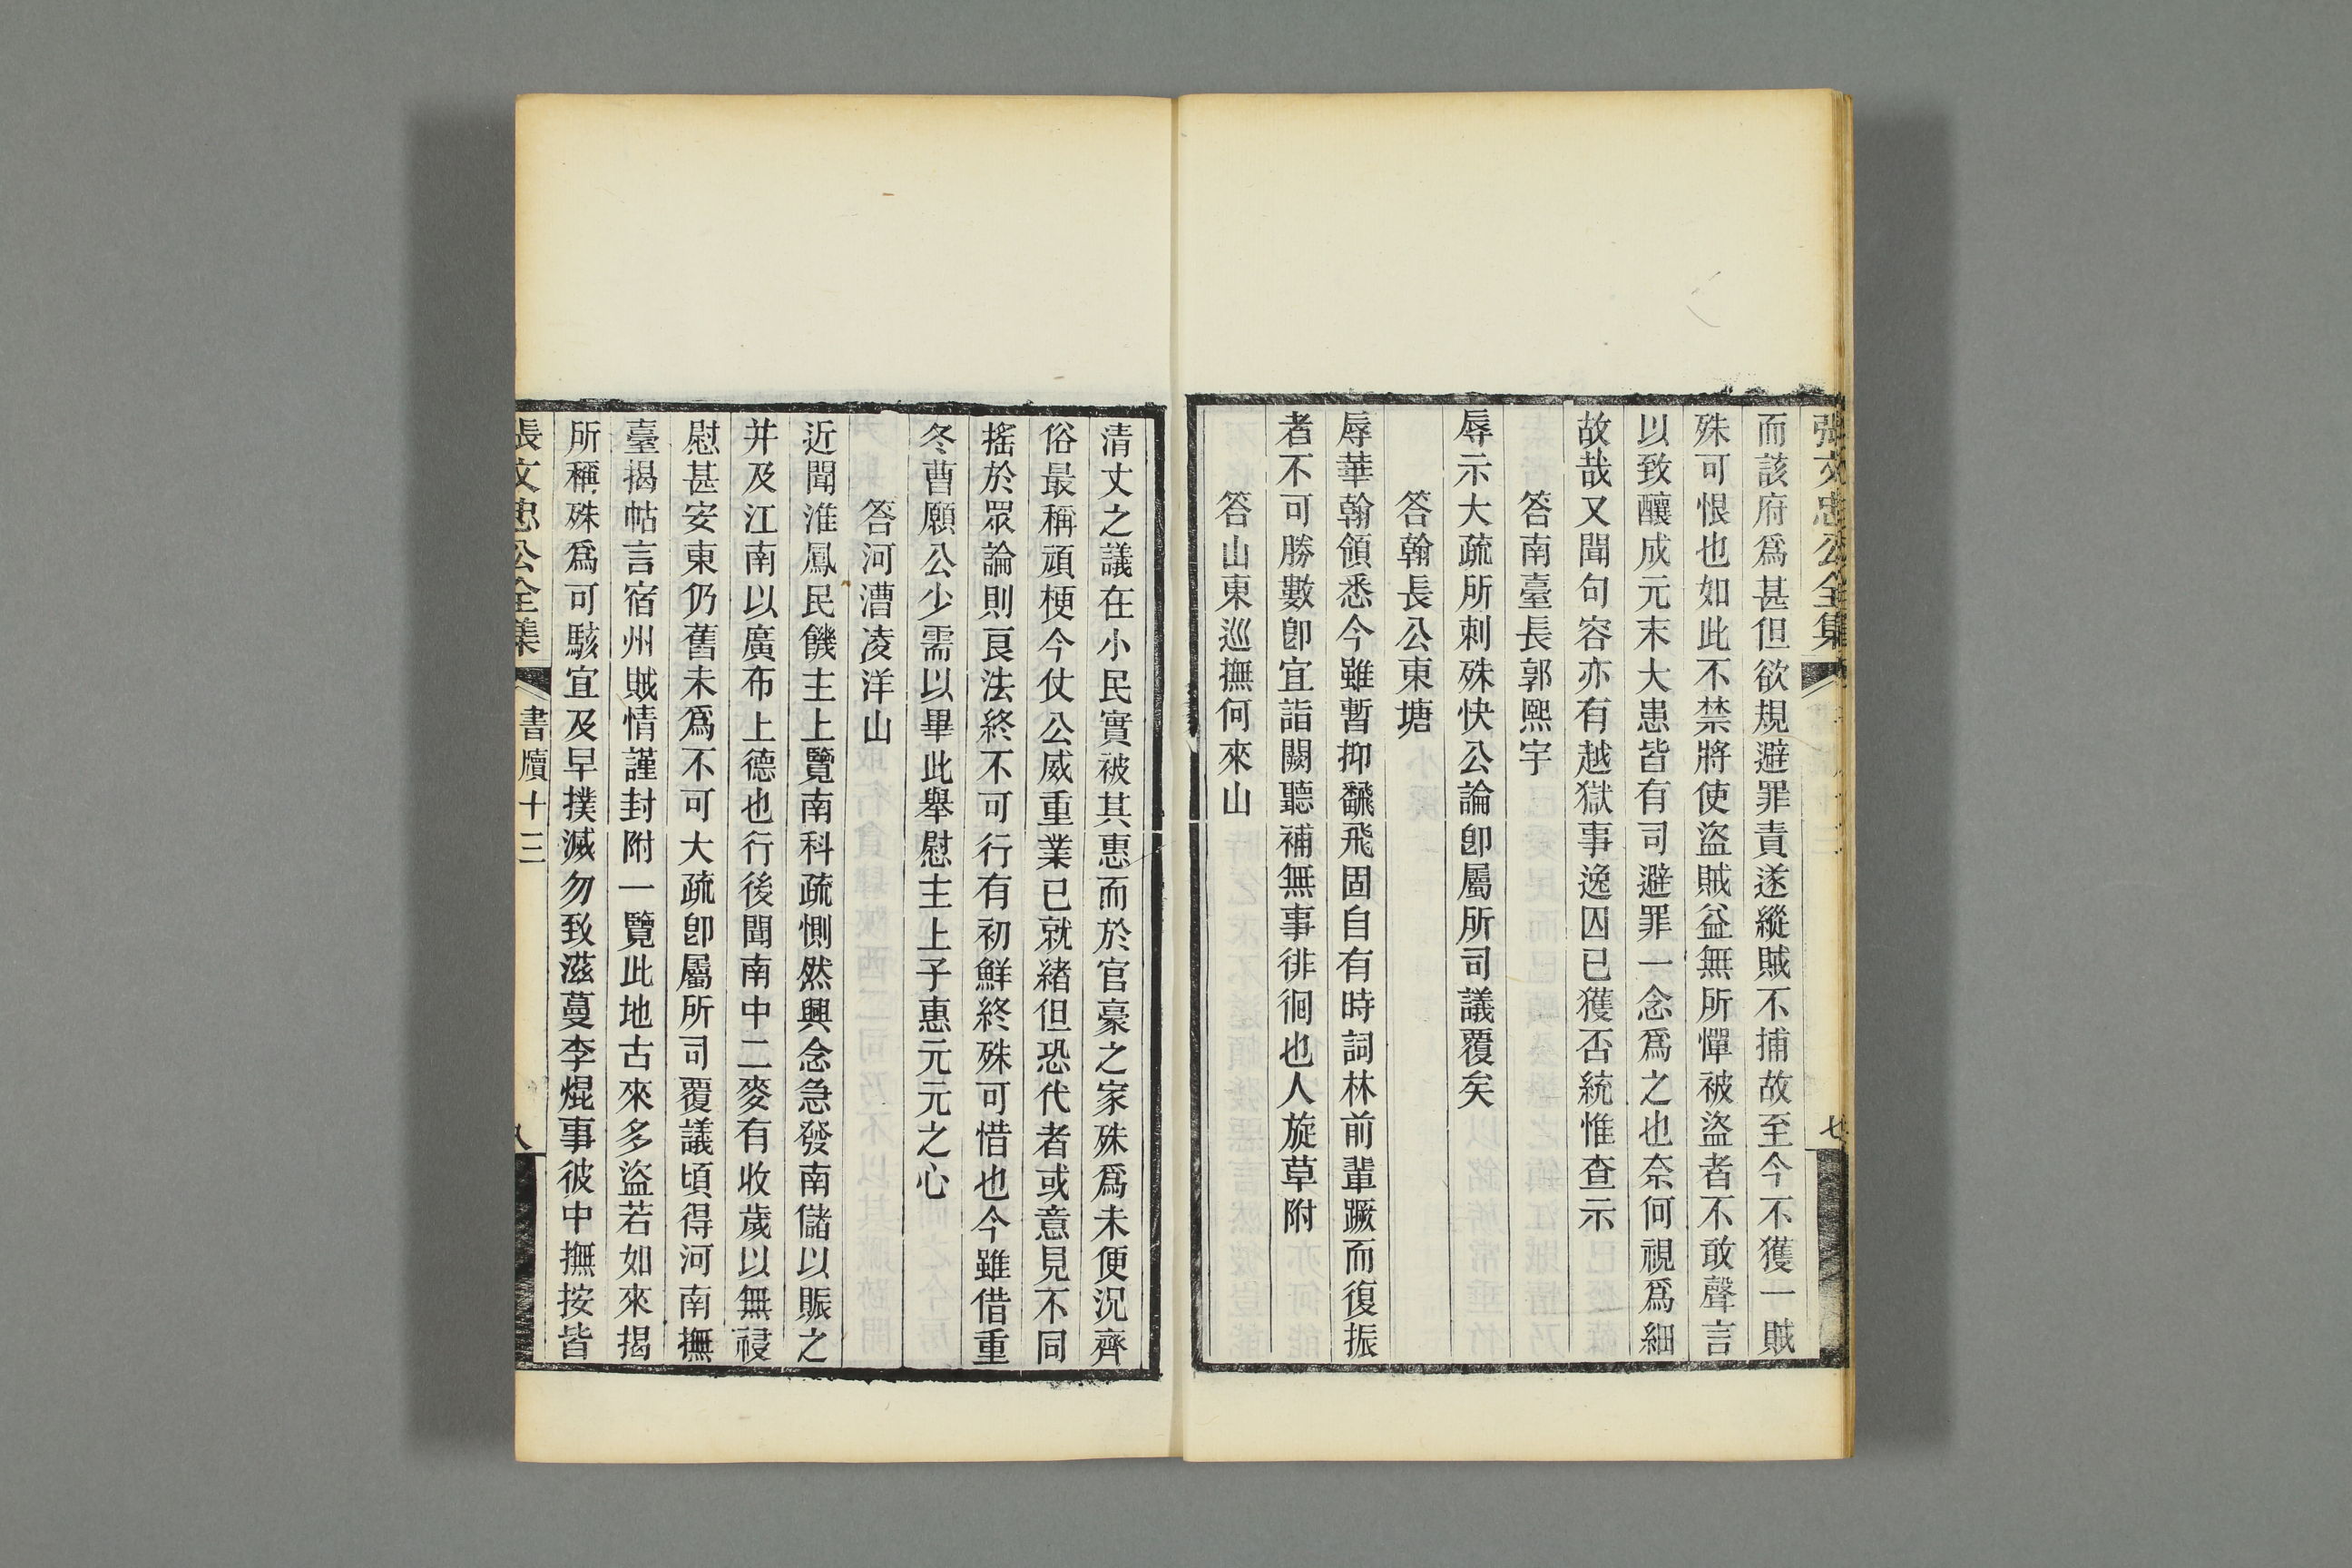 張文忠公全集
七
而該府爲甚但欲規避罪責遂縱賊不捕故至今不獲一賊
殊可恨也如此不禁將使盜賊益無所憚被盜者不敢聲言
以致釀成元末大患皆有司避罪一念爲之也奈何視爲細
故哉又聞句容亦有越獄事逸囚已獲否統惟查示
答南臺長郭熙宇
辱示大疏所刺殊快公論卽屬所司議覆矣
答翰長公東塘
辱華翰領悉今雖暫抑飜飛固自有時詞林前輩蹶而復振
者不可勝數卽宜詣闕聽補無事徘徊也人旋草附
答山東巡撫何來山
清丈之議在小民實被其惠而於官豪之家殊爲未便況齊
俗最稱頑梗今仗公威重業已就緒但恐代者或意見不同
搖於眾論則良法終不可行有初鮮終殊可惜也今雖借重
冬曹願公少需以畢此舉慰主上子惠元元之心
答河漕凌洋山
近聞淮鳳民饑主上覽南科疏惻然興念急發南儲以賑之
并及江南以廣布上德也行後聞南中二麥有收歲以無祲
慰甚安東仍舊未爲不可大疏卽屬所司覆議頃得河南撫
臺揭帖言宿州賊情謹封附一覽此地古來多盜若如來揭
所稱殊爲可駭宜及早撲滅勿致滋蔓李焜事彼中撫按皆
張文忠公全集
書牘十三
八